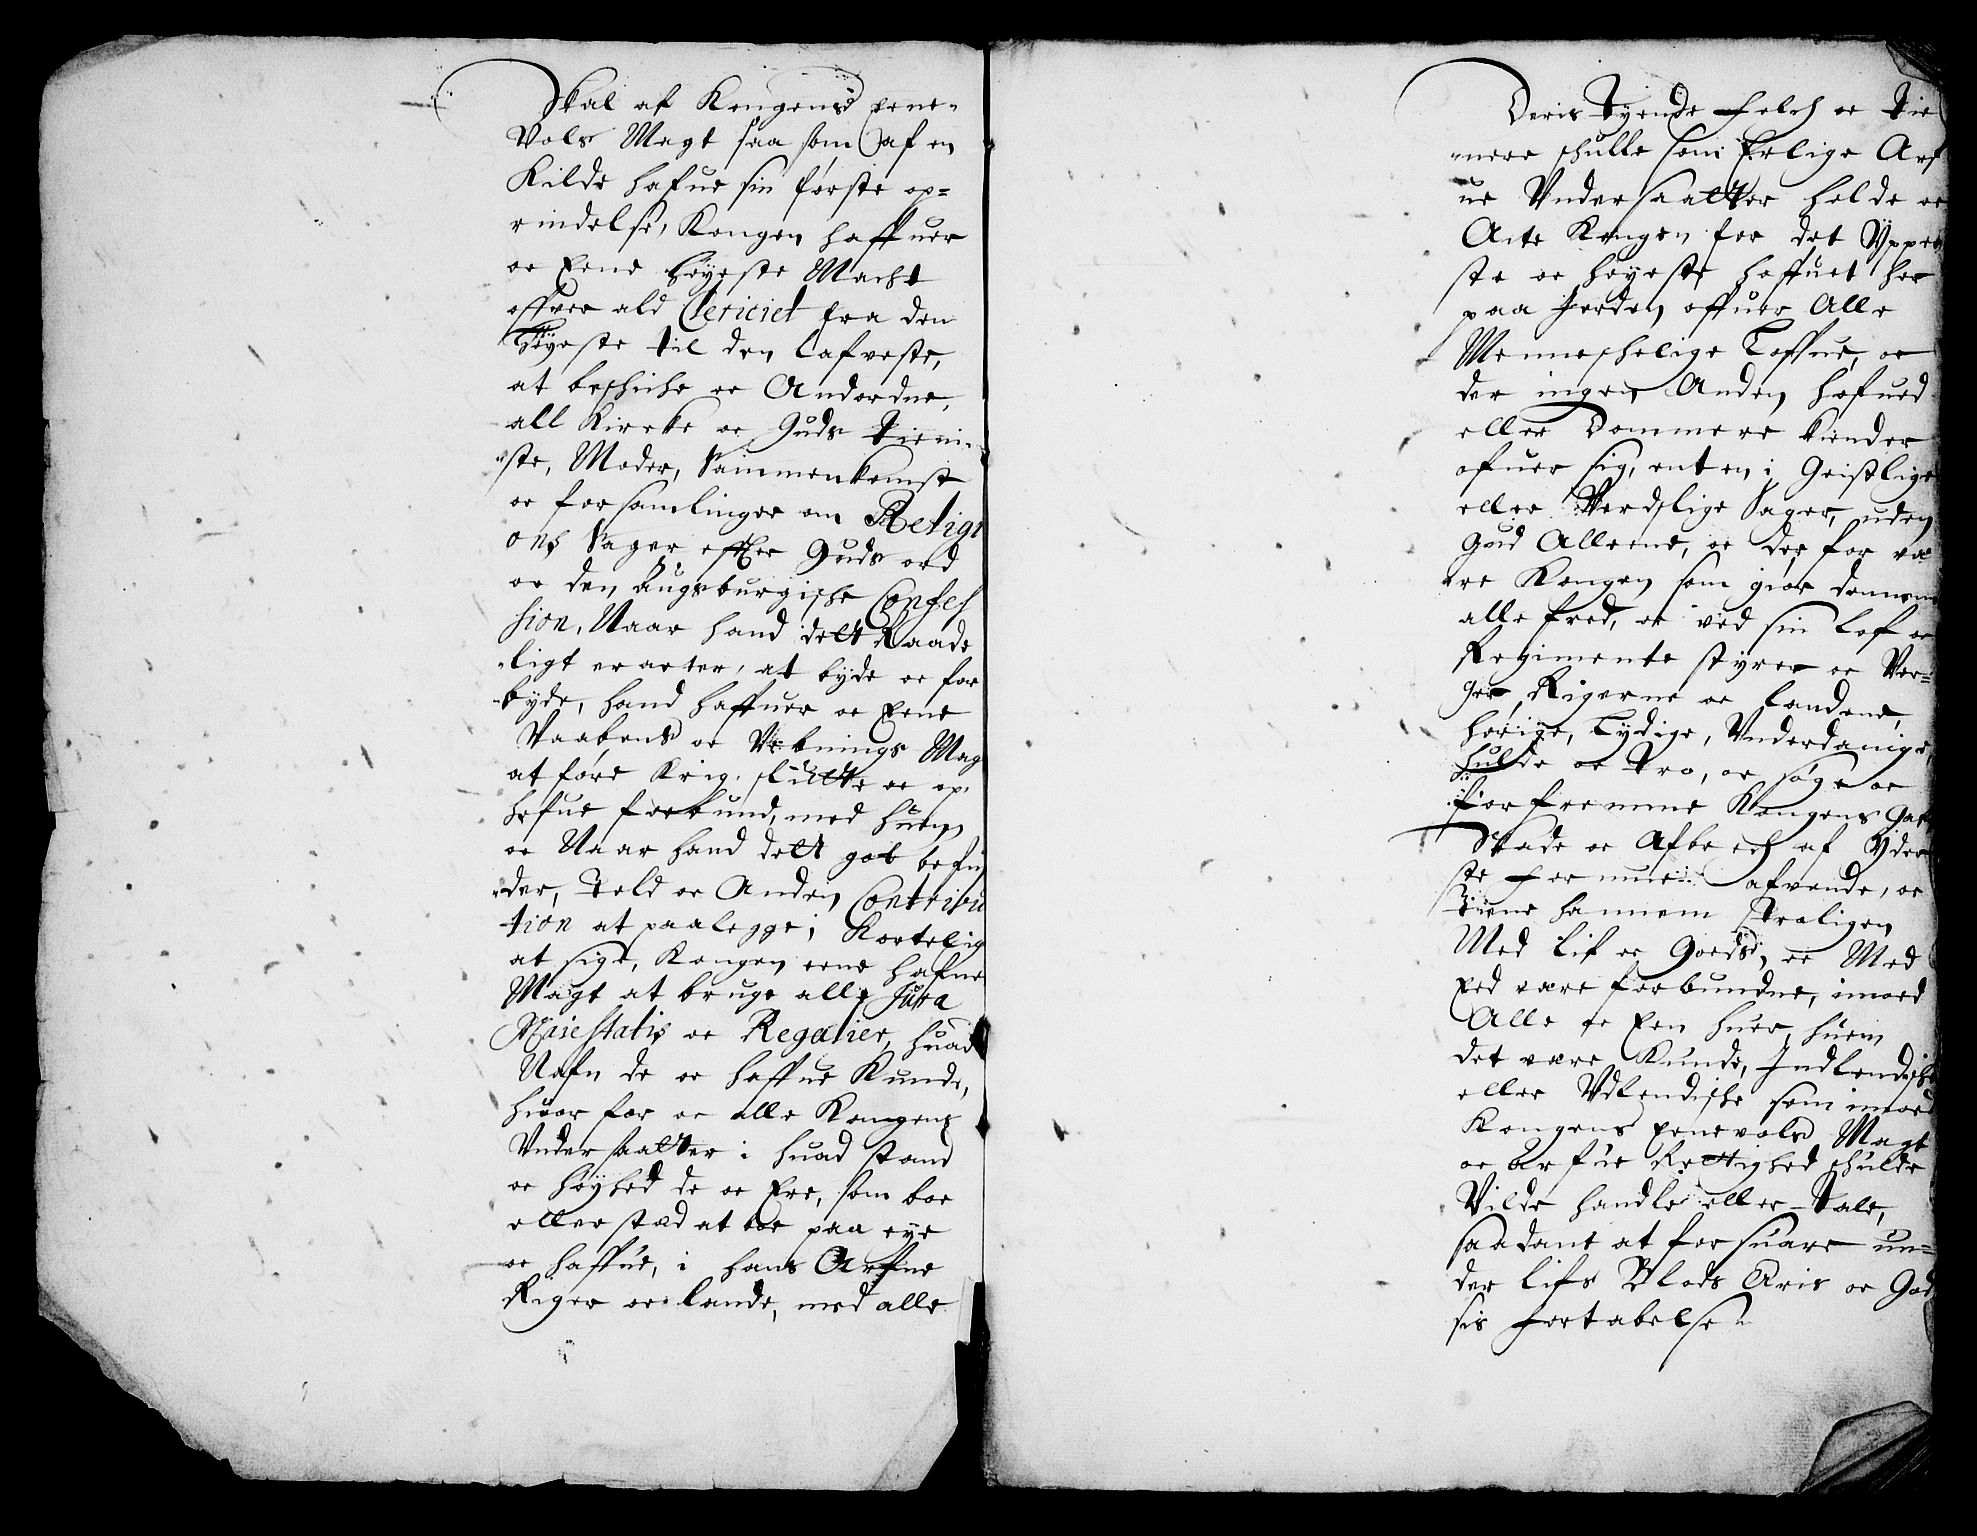 Skal af Kongens eene-
Vols Magt saa som af en
Kilde hafue sin første op-
rindelse, Kongen haffuer
oc Eene høyeste Macht
offver ald Clericiet fra den
høyeste til den lafveste,
at beschiche oc Andordne,
all Kircke oc Guds tieni-
ste, Moder, Sammenkomst
oc forsamlinger om Religi
ons Sager, effter Guds ord
oc den Augsburgische Confes
sion, Naar hand dett Raade
ligt eracter, at byde oc for
byde, hand haffuer oc Eene
Vaabens oc Vebnings Mag
at føre Krig, slutte oc op
hefue forbund, med huem
oc Naar hand dett got befin
der, Told oc Anden Contribu
tion at paalegge; Kortelig
at sige, Kongen eene hafue
Magt at bruge alle Jura
Majestatis oc Regalier, huad
Nafn de oc haffue Kunde,
huor for oc alle Kongens
Vndersaatter i huad stand
oc høyhed de oc Ere, som boe
eller stæd at boe paa eye
oc haffue, i hans Arfue
Riger oc lande, med alle
Deris Tyende folch oc Tie
nere schulle som Erlige Arf
ue Vndersaatter holde oc
Acte Kongen for det Ypper
ste oc høyeste hoffuet her
paa Jorden offuer Alle
Menneschelige Loffue, oc
der ingen Anden hofued
eller Dommere kiender
ofuer sig, enten i Geistlige
eller Verdslige Sager, uden
Gud Alleene, oc der for væ
re Kongen som giør dennem
alle fred, oc ved sin Lof oc
Regimente styrer oc Ver-
ger Rigerne oc landene,
hørige, Lydige, Vnderdanige,
hulde oc tro, oc søge oc
forfremme Kongens Gafn
Skade oc Afbrech af Yder
ste formue afvende, oc
tiene hannem troligen
Med Lif oc Goeds, oc Med
Eed være forbundne, imoed
Alle oc Een huer, huem
det være Kunde, Indlendische
eller Vdlendische som imoed
Kongens eenevols Magt
oc Arfue Rettighed schulde
Vilde handle eller Tale,
saadant at forsuare un-
der Lifs Blods Æris oc God
sis fortabelse